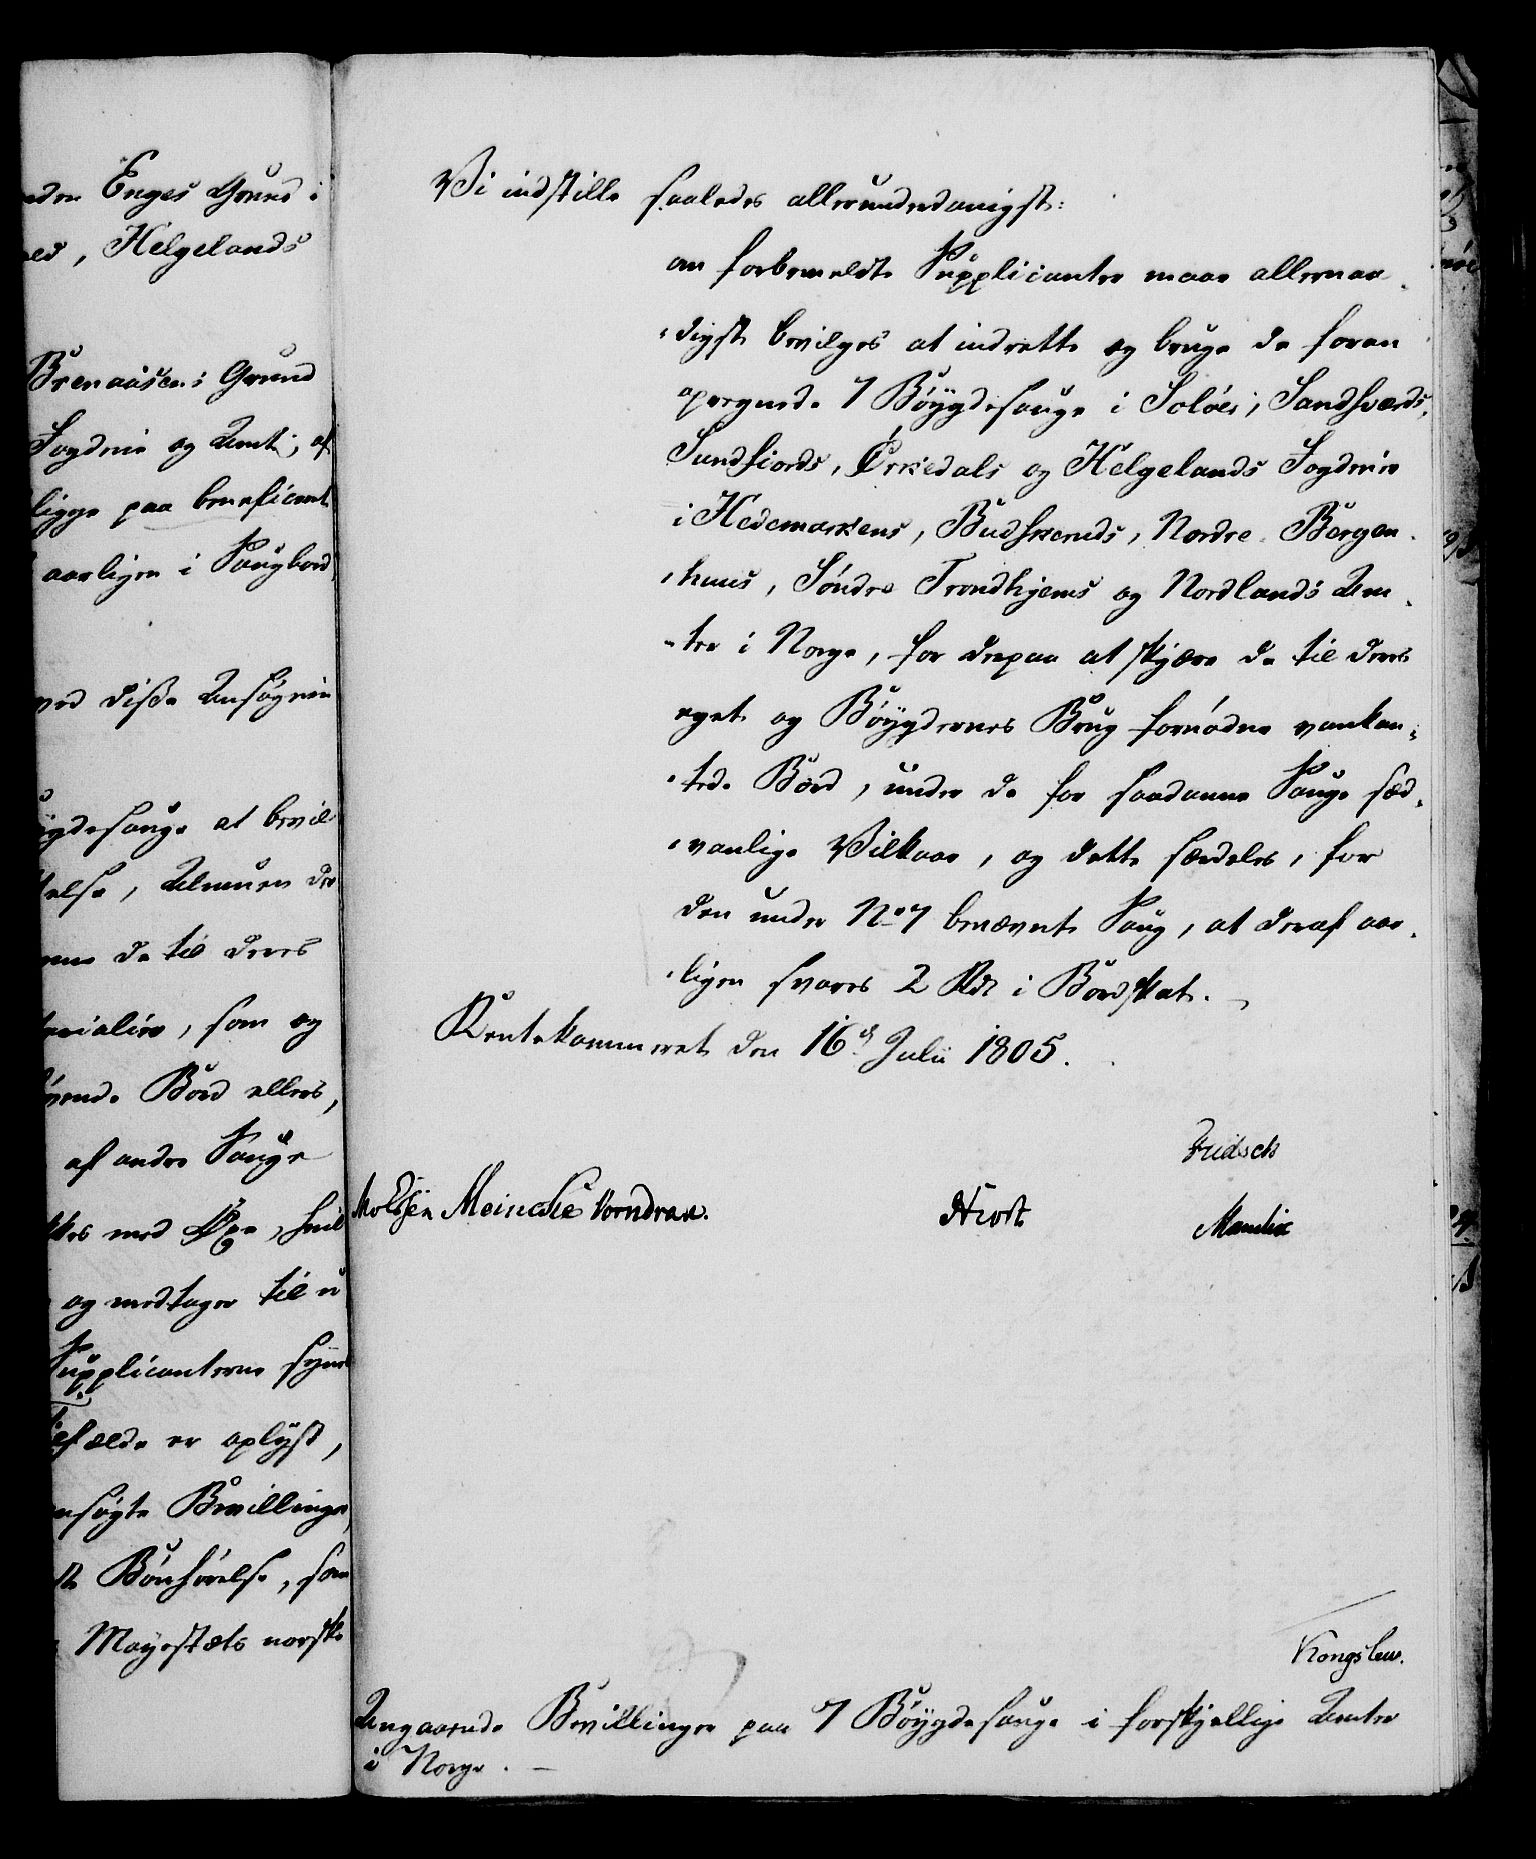 nden Enges Grund i
ed, Helgelands
Brenaasens Grund
Fogderie og Amt, af
ligge paa beneficeret
aarligen i Saugbord
ved disse Ansøgnin
ygdesauge at bevil
else, Almuen der
de til deres
terialier, som og
Bord ellers,
af andre Sauge
med Øxe, hvil
og medtager til u
Supplicanterne synes
fælde er oplyst,
nsøgte Bevillinger
Bønhørelse, som
Mayestæts norske
Vi indstille saaledes allerunderdanigst:
om forbemeldte Supplicanter maae allernaa-
digst bevilges at indrette og bruge de foran
opregnede 7 Bøygdesauge i Soløers, Sandsværds,
Sundfiords, Örkedals og Helgelands Fogderier
i Hedemarkens, Budskeruds, Nordre Bergen-
huus, Søndre Trondhjems og Nordlands Am-
ter i Norge, for derpaa at skjære de til deres
eget og Bøygdernes Brug fornødne vankan-
tede Bord, under de for saadanne Sauge sæd-
vanlige Vilkaar, og dette særdeles, for
den under No 7 benævnte Saug, at deraf aar-
ligen svares 2 Rdl i Bordskat. -
Rentekammeret den 16d Julii 1805.
Fridsch
Moldsen Meincke Vorndran. Hiort Manthei
Kongslew.
Angaaende Bevillinger paa 7 Bøygdesauge i forskjellige Amter
i Norge. -